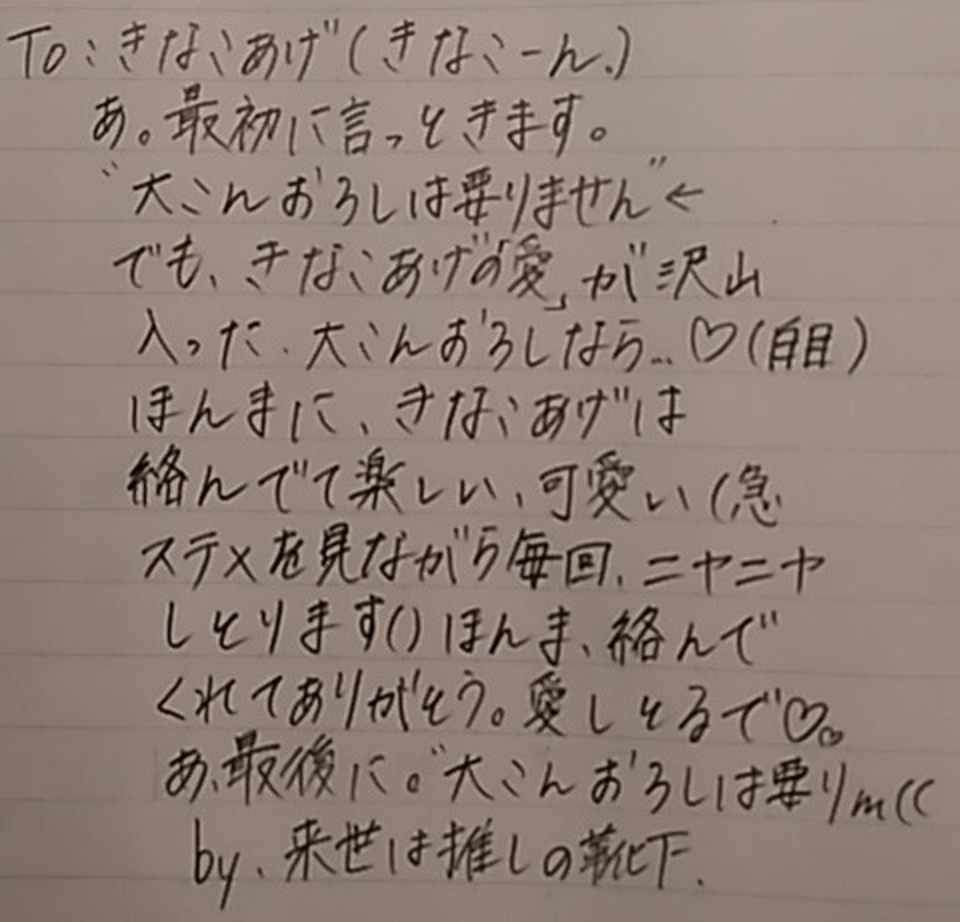 To:きなこあげ(きなこーん.)
あ。最初に言っときます。
"大こんおろしは要りません"←
でも、きなこあげの「愛」が沢山
入った、大こんおろしなら…♡(白目)
ほんまに、きなこあげは
絡んでて楽しい、可愛い(急
ステメを見ながら毎回、ニヤニヤ
しとります()ほんま、絡んで
くれてありがとう。愛しとるで♡。
あ、最後に。"大こんおろしは要りm((
by、来世は推しの靴下.